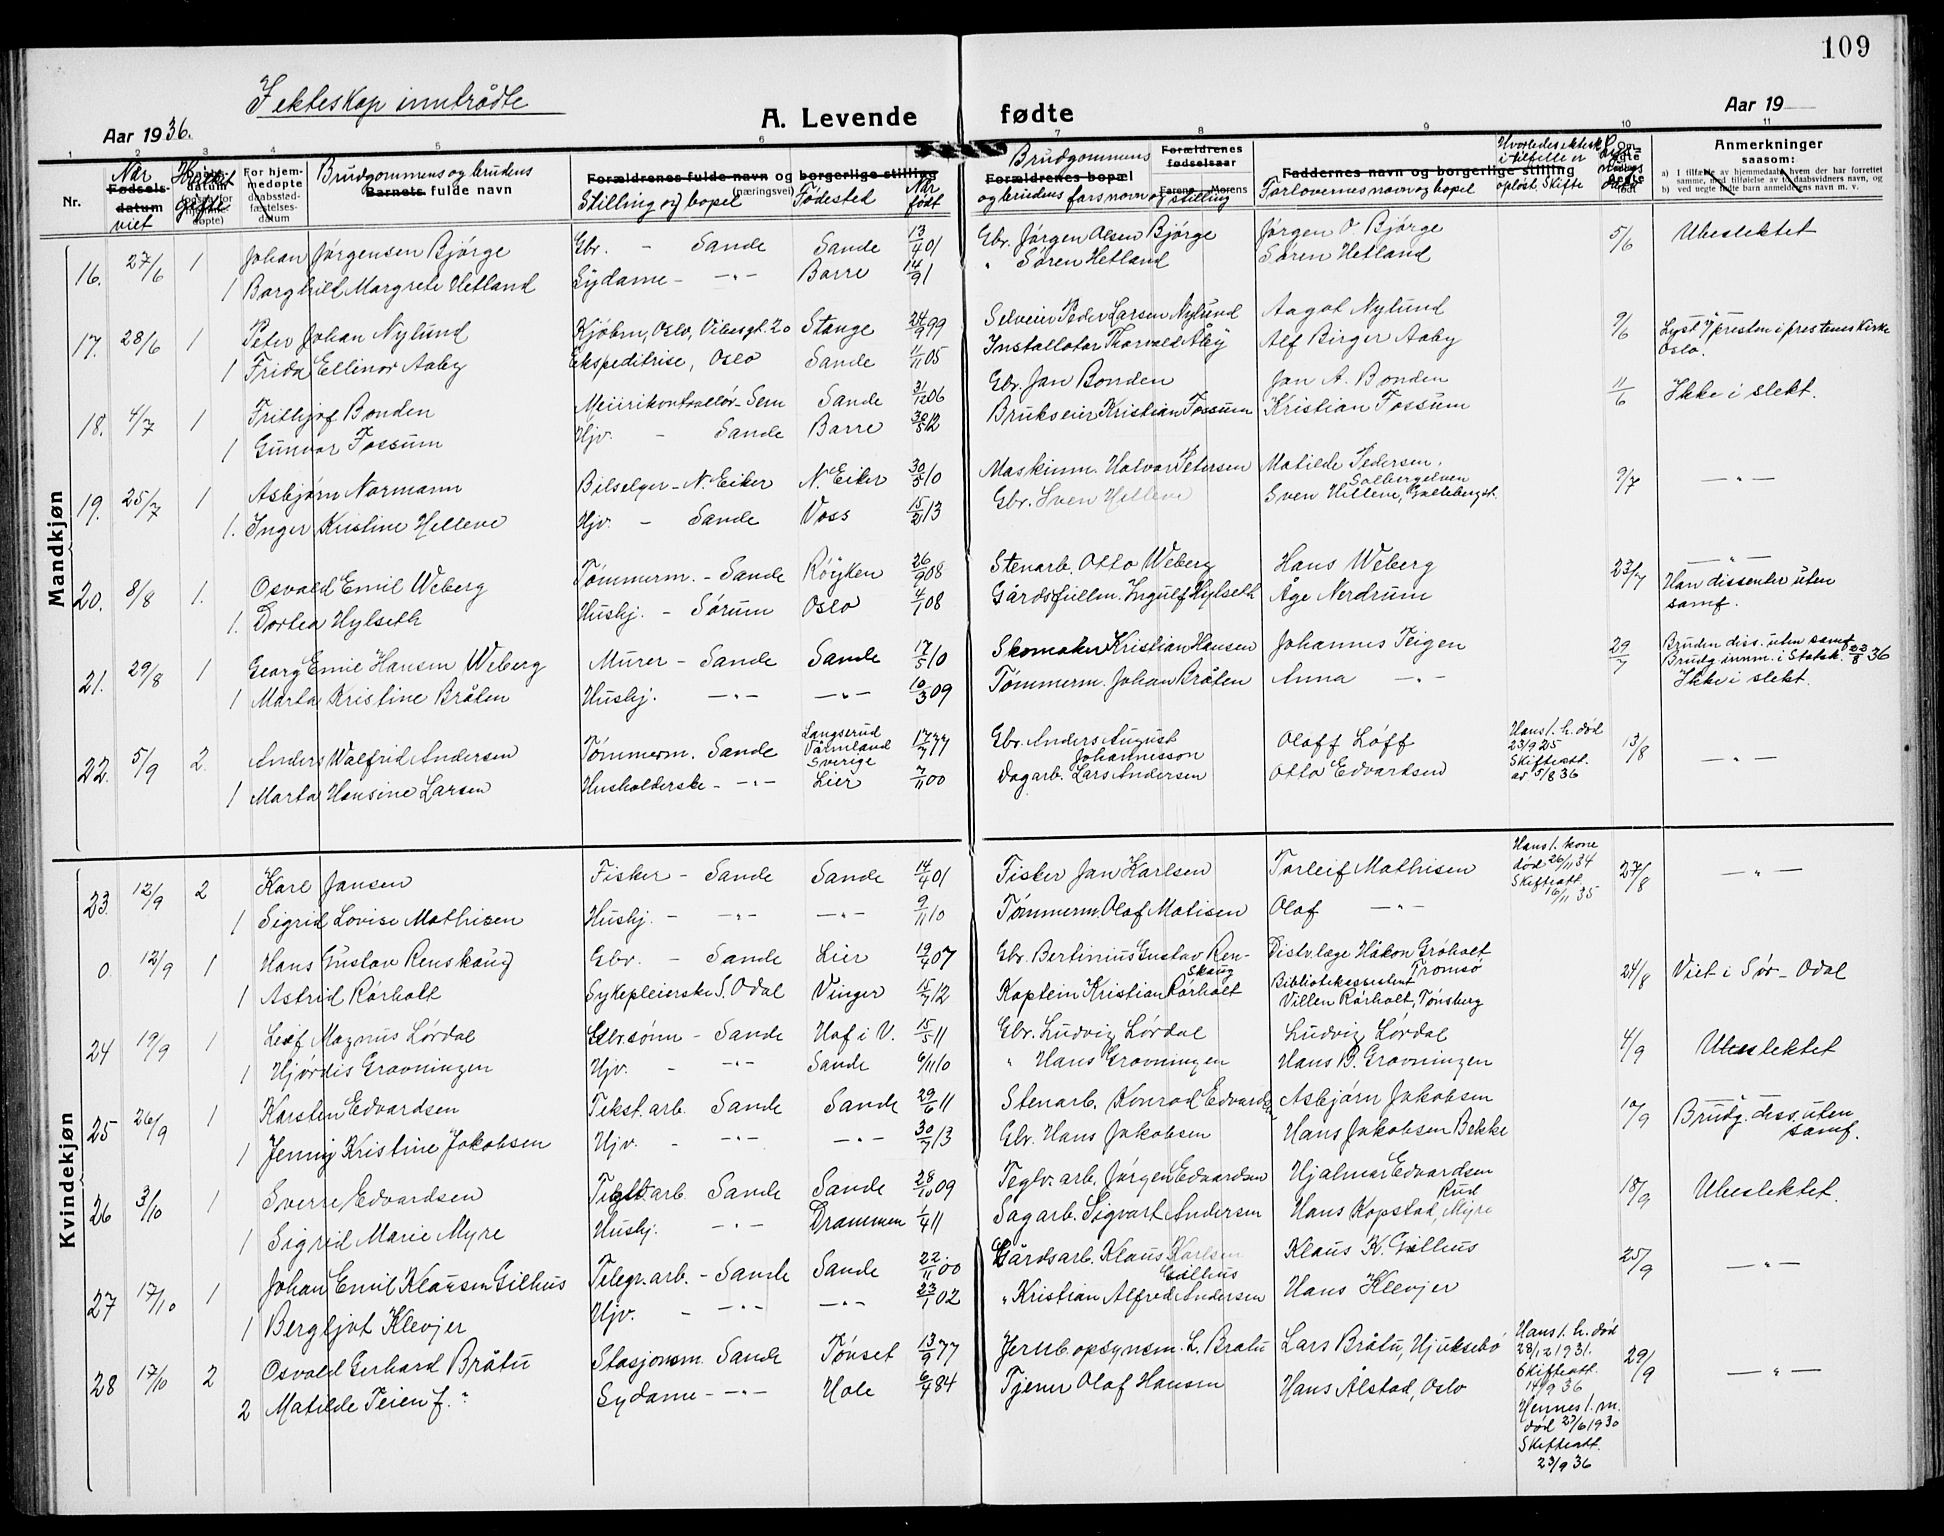 109
I ekteskap inntrådte
Aar 1936. A. Levende fødte Aar 19
1 2 3 4 5 6 7 8 9 10 11
Nr.
Når Fødsels-datum viet
gifte
For hjemmedøpte daabsstedfæstelses-datum
Brudgommens og brudens Barnets fulde navn
Forældrenes fulde navn og borgerlige stilling (næringsvei)
Stilling og bopel Fødested Når født
Brudgommens Forældrenes fødselsaar
Forældrenes bopæl Farens Morens
og brudens fars navn og stilling
Faddernes navn og borgerlige stilling
Forlovernes navn og bopel
Hvorledes ektesk. i tilfelle er opløst. Skifte
Anmerkninger saasom:
a) I tilfælde av hjemmedaab, hvem der har forrettet samme, med tilføielse av to daabsvidners navn, og
b) ved uegte fødte barn anmelderens navn m. v.
Mandkjøn
16. 27/6 1 Johan Jørgensen Bjørge Gbr. - Sande Sande 13/4 01 Gbr. Jørgen Olsen Bjørge Jørgen O. Bjørge 5/6 Ubeslektet
1 Borghild Margrete Hetland Sydame - -"- Borre 14/9 1 " Søren Hetland Søren Hetland
17. 28/6 1 Peter Johan Nylund Kjøbm, Oslo, Vibesgt. 20 Stange 24/9 99 Selveier Peder Larsen Nylund Aagot Nylund 9/6 Lyst v/presten i prestenes Kirke
1 Frida Ellinor Aaby Ekspeditrise, Oslo Sande 1/11 05 Installatør Thorvald Åby Alf Birger Aaby Oslo.
18. 4/7 1 Frithjof Bonden Meierikontrollør - Sem Sande 31/12 06 Gbr. Jan Bonden Jan A. Bonden 11/6 Ikke i slekt.
1 Gunvor Fossum Hjv. - Sande Borre 30/5 12 Brukseier Kristian Fossum Kristian Fossum
19. 25/7 1 Asbjørn Normann Bilselger - N. Eiker N. Eiker 30/5 10 Maskinm. Halvor Petersen Matilde Pedersen, Solbergelven 9/7 -"-
1. Inger Kristine Helleve Hjv. - Sande Voss 15/2 13 Gbr. Sven Helleve Sven Helleve, Galleberg st.
20. 8/8 1. Osvald Emil Weberg Tømmerm. - Sande Røyken 26/9 08 Stenarb. Otto Weberg Hans Weberg 23/7 -"-
1. Dortea Hylseth Hushj. - Sørum Oslo 4/1 08 Gårdsfullm. Ingulf Hylseth Åge Nerdrum Han dissenter uten samf.
21. 29/8 1 Georg Emil Hansen Weberg Murer - Sande Sande 17/5 10 Skomaker Kristian Hansen Johannes Teigen 29/7 Bruden diss. uten samf.
1 Marta Kristine Bråten Hushj. -"- -"- 10/3 09 Tømmerm. Johan Bråten Anna -"- Brudg innm. i Statsk. 22/8 36
Ikke i slekt.
22. 5/9 2. Anders Walfrid Andersen Tømmerm. Sande Langserud Värmland Sverige 17/7 77 Gbr. Anders August Johannisson Oloff Løff Hans 1. h. død 23/9 25 Skifteatt. av 5/8 36 13/8 -"-
1 Marta Hansine Larsen Husholderske - -"- Lier 7/11 00 Dagarb. Lars Andersen Otto Edvardsen
Kvindekjøn
23. 12/9 2 Karl Jansen Fisker - Sande Sande 14/4 01 Fisker Jan Karlsen Torleif Mathisen Hans 1. kone død 26/11 34 Skifteatt. 16/11 35 27/8 -"-
1 Sigrid Lovise Mathisen Hushj. - -"- -"- 9/11 10 Tømmerm. Olaf Matisen Olaf -"-
0. 12/9 1 Hans Gustav Renskaug Gbr. - Sande Lier 19/4 07 Gbr. Bertinius Gustav Renskaug Distr.læge Håkon Grøholt Tromsø 24/8 Viet i Sør-Odal
1 Astrid Rørholt Sykepleierske S. Odal Vinger 15/7 12 Kaptein Kristian Rørholt Biblioteksassistent Villen Rørholt, Tønsberg
24 19/9 1 Leif Magnus Lørdal Gbr.sønn - Sande Hof i V. 15/5 11 Gbr. Ludvig Lørdal Ludvig Lørdal 4/9 Ubeslektet
1 Hjørdis Grovningen Hjv. - -"- Sande 6/11 10 " Hans Grovningen Hans B. Grovningen
25 26/9 1 Karsten Edvardsen Tekst.arb. Sande Sande 29/6 11 Stenarb. Konrad Edvards. Asbjørn Jakobsen 10/9 Brudg. diss. uten samf.
1 Jenny Kristine Jakobsen Hjv. - -"- -"- 30/7 13 Gbr. Hans Jakobsen Hans Jakobsen Bekke
26 3/10 1 Sverre Edvardsen arb. Sande Sande 28/10 09 Teglv. arb. Jørgen Edvardsen Hjalmar Edvardsen Rud 18/9 Ubeslektet.
1 Sigrid Marie Myre Hushj. -"- Drammen 1/4 11 Sagarb. Sigvart Andersen Hans Kopstad, Myre
27 17/10 1 Johan Emil Klausen Gilhus Telegr.arb. - Sande Sande 22/11 00 Gårdsarb. Klaus Karlsen Gilhus Klaus K. Gilhus 25/9 -"-
1 Bergljot Klevjer Hjv. - -"- -"- 23/1 02 " Kristian Alfred Andersen Hans Klevjer
28 17/10 2 Osvald Gerhard Bråtu Stasjonsm. Sande Tønset 13/9 77 Jernb. opsynsm. L. Bratu Lars Bråtu, Hjuksebø Hans 1. h. død 28/12 1931. Skifteatt. 14/9 36 29/9 -"-
2 Matilde Teien f. " Sydame - -"- Hole 6/4 84 Tjener Olaf Hansen Hans Ålstad, Oslo Hennes 1. m. død 27/6 1930 Skifteatt. 23/9 36